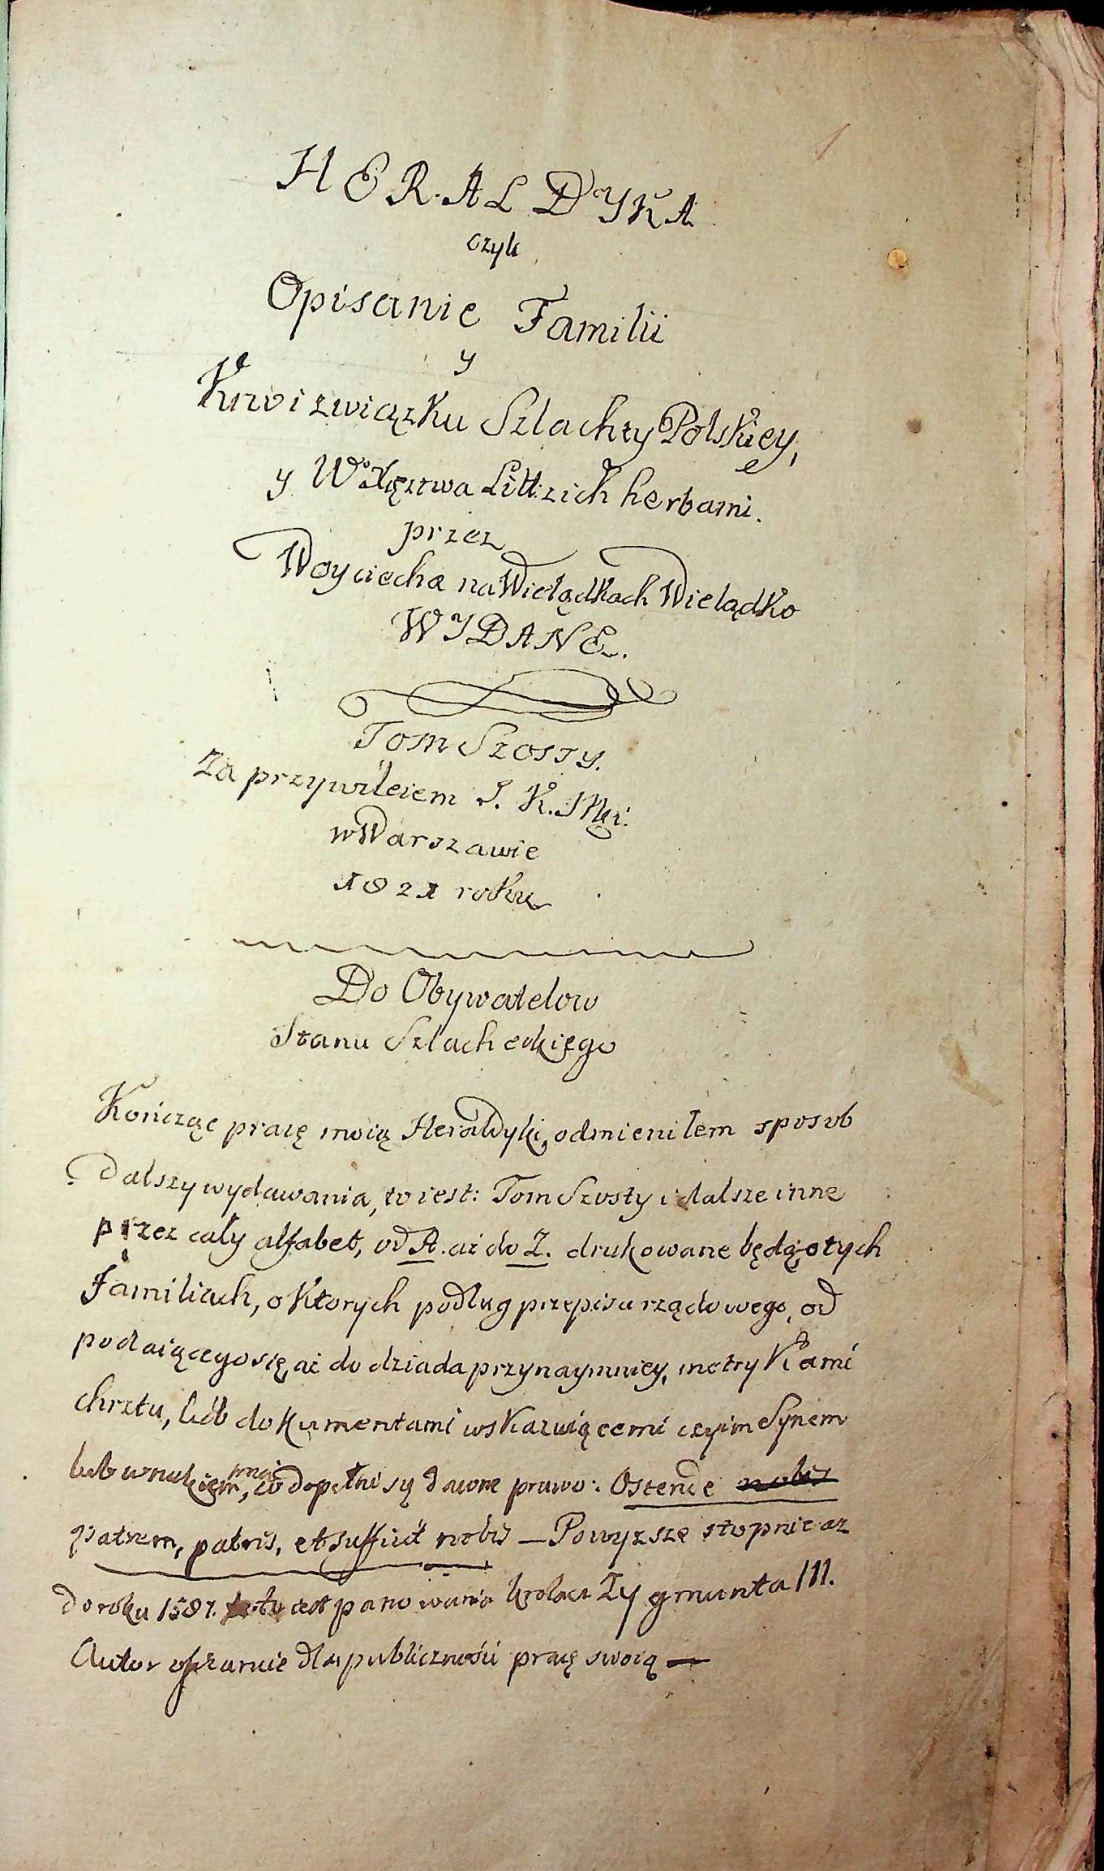 HERALDYKA
czyli
Opisanie Familii
y
Krwi związku Szlachty Polskiey,
y W° Xięztwa Litt: z ich herbami.
przez
Woyciecha na Wielądkach Wielądko
WYDANE.
Tom Szosty.
Za przywileiem J. K. Mci:
w Warszawie
1821 roku
Do Obywatelow
Stanu Szlacheckiego
Kończąc pracę moią Heraldyki, odmieniłem sposob
dalszy wydawania, to iest: Tom Szosty i dalsze inne
przez cały alfabet, od A. aż do Z. drukowane będą o tych
Familiach, o ktorych podług przepisu rządowego, od
podaiącego się, aż do dziada przynaymniey, metrykami
chrztu, lub dokumentami wskazuiącemi czyim Synem
lub wnukiem, co dopełni się dawne prawo: Ostende nobis
patrem, patris, et sufficit nobis — Powyższe stopnie aż
do roku 1587. to iest panowania krola Zygmunta III.
Autor ofiaruie dla publiczności pracę swoią —